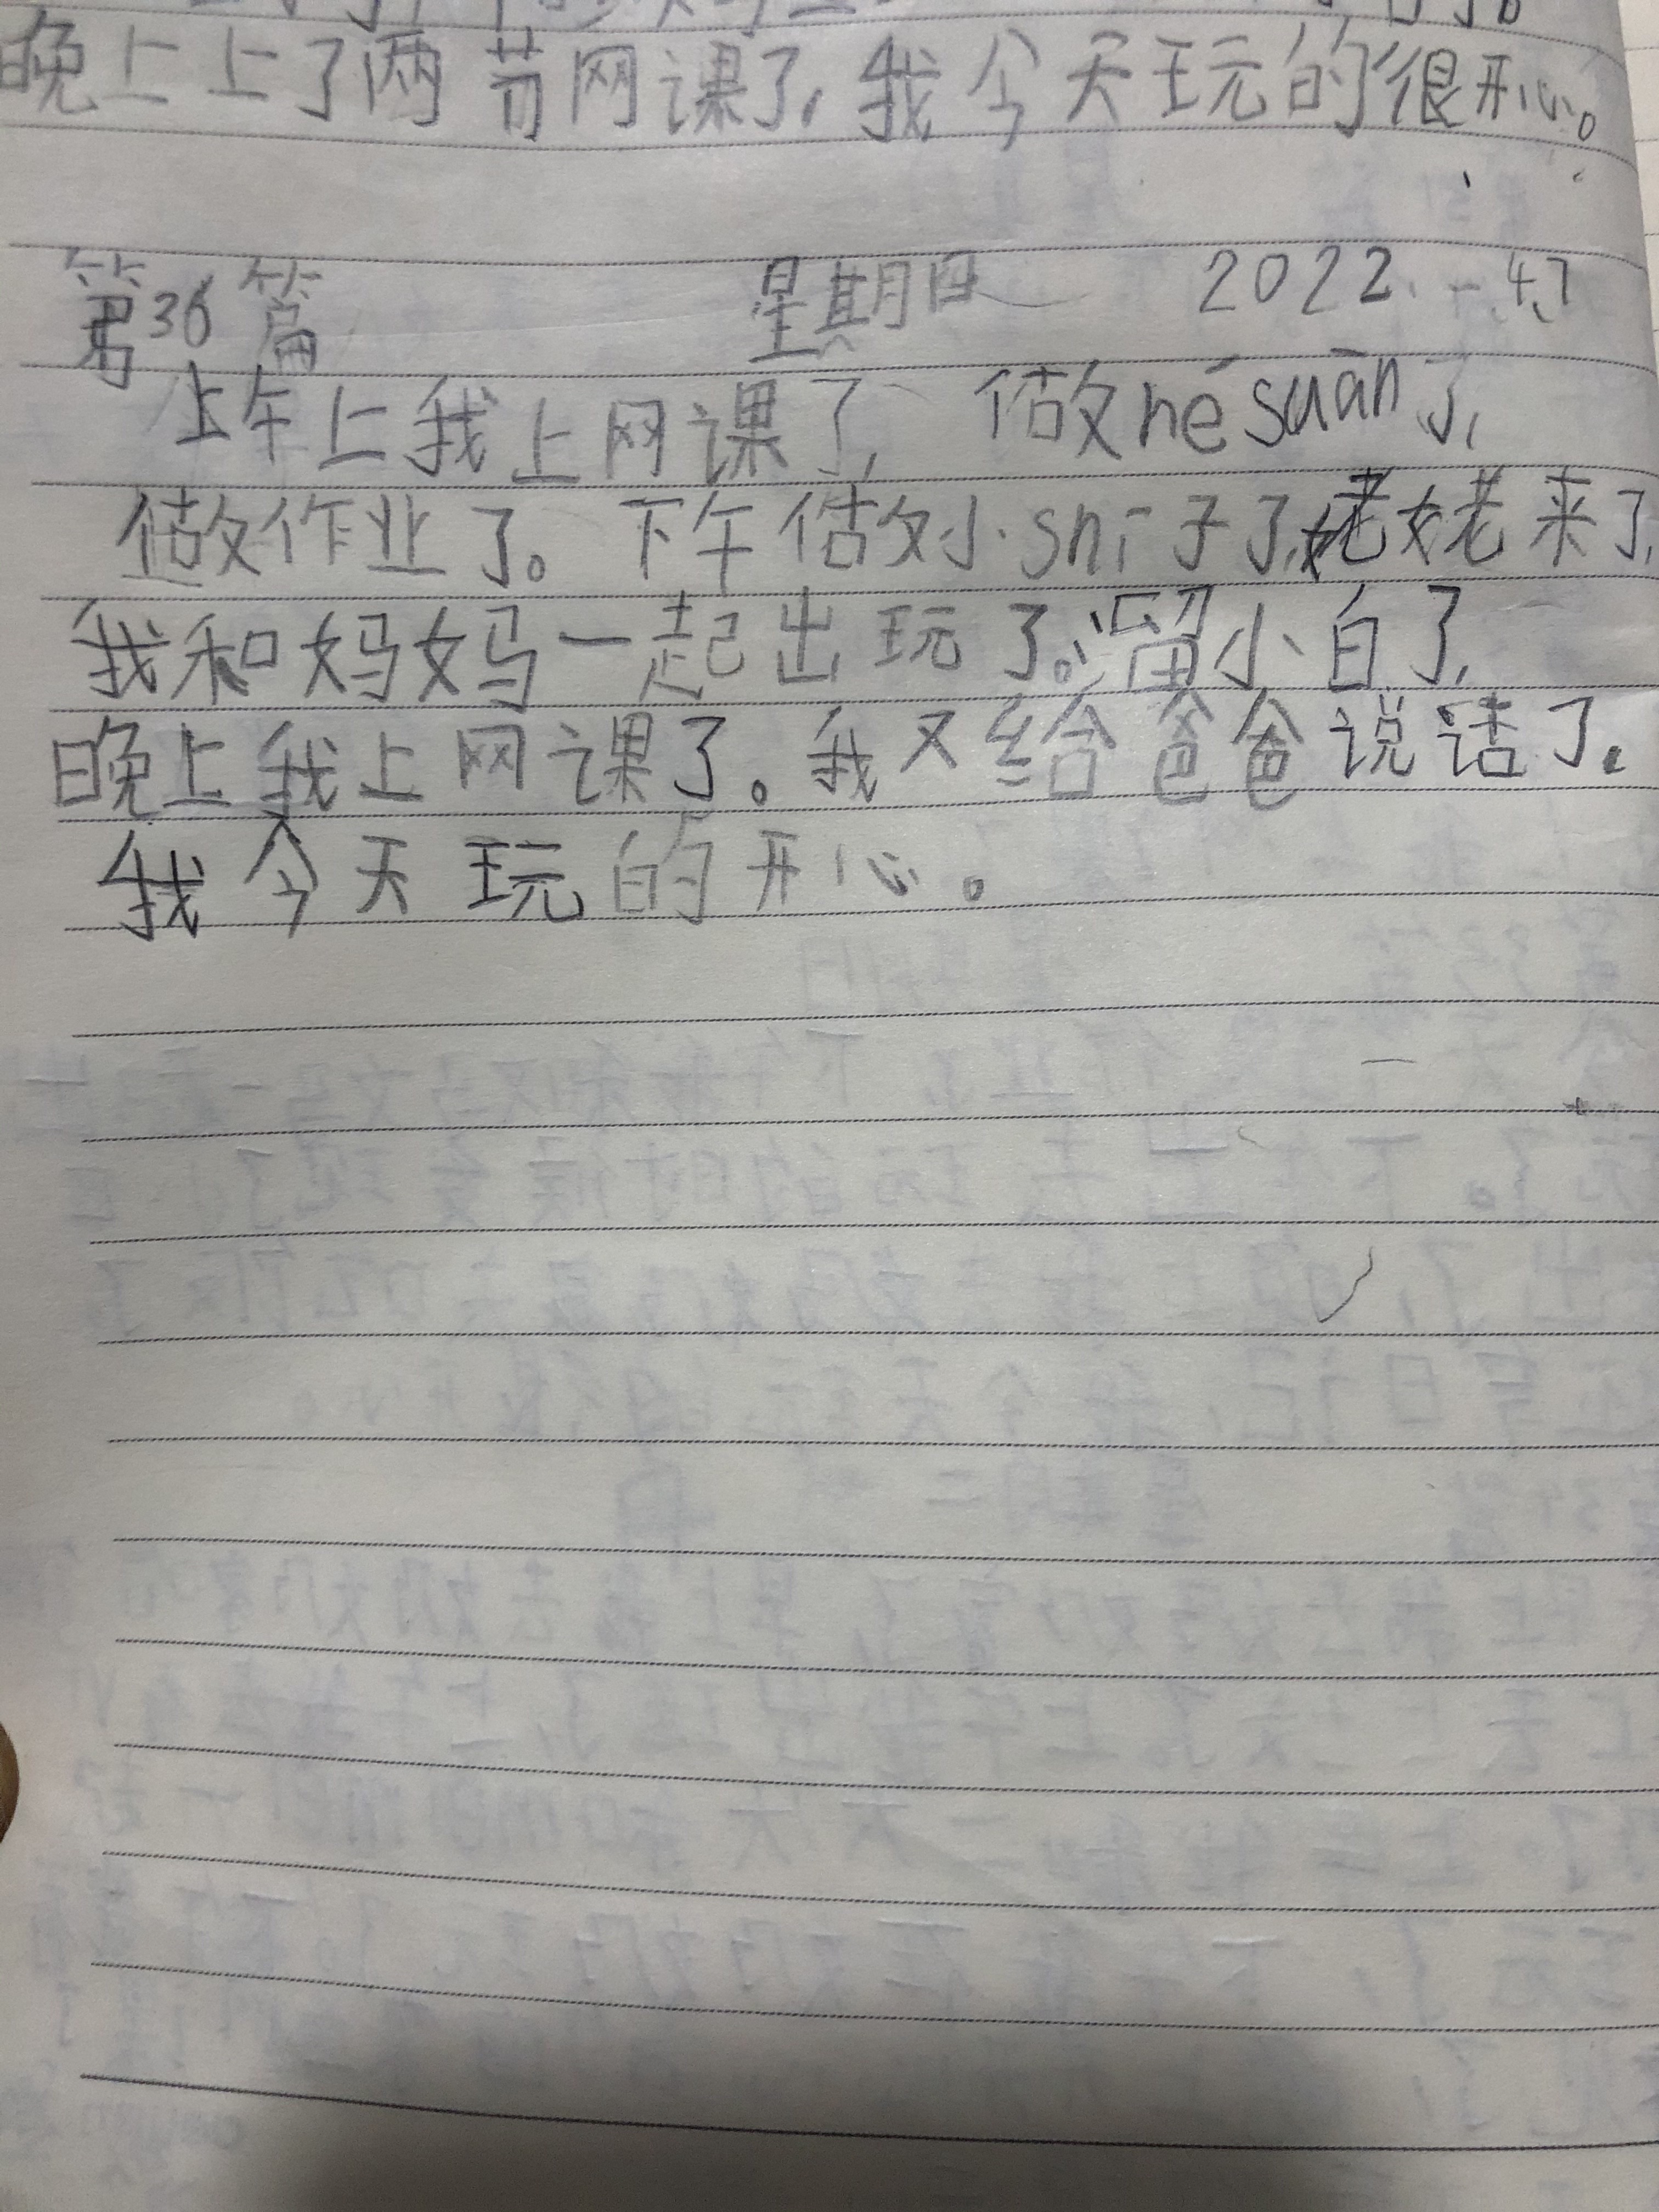 晚上上了两节网课了,我今天玩的很开心。
第36篇 星期四 2022.4.7
上午上我上网课了,做nésuàn了,
做作业了。下午做小shī子了,姥姥来了,
我和妈妈一起出玩了。溜小白了,
晚上我上网课了。我又给爸爸说话了。
我今天玩的开心。